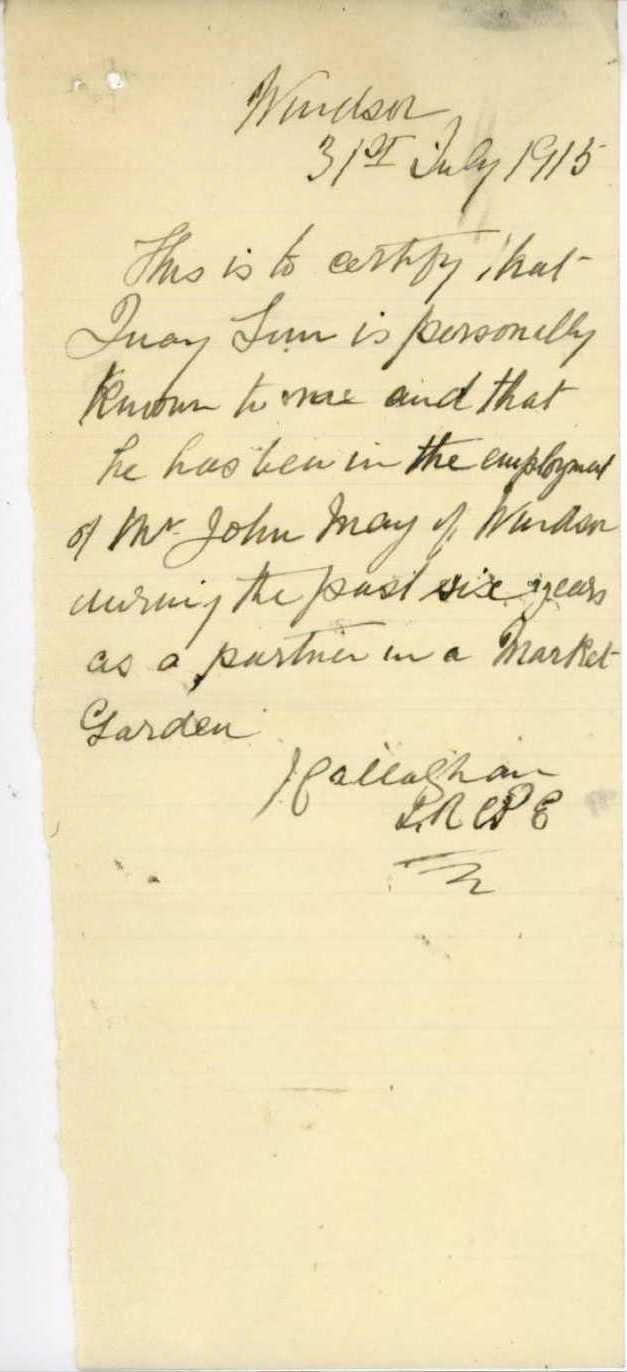 Windsor
31st July 1915
This is to certify that
Quay Sun is personally
Known to me and that
he has been in the employment
of Mr John May of Windsor
during the past six years
as a partner in a Market
Garden
J Callaghan
L.R.C.P.E